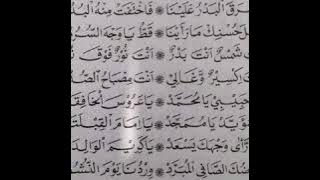 شْرَقَ الْبَدْرُ عَلَيْنَا ۞ فَاخْتَفَتْ مِنْهُ الْبُدُ
لَ حُسْنِكَ مَا رَأَيْنَا ۞ قَطُّ يَا وَجْهَ السُّرُ
شَمْسٌ أَنْتَ بَدْرٌ ۞ أَنْتَ نُورٌ فَوْقَ نُ
كْسِيرٌ وَغَالِي ۞ أَنْتَ مِصْبَاحُ الصُّ
حَبِيبِي يَا مُحَمَّدُ ۞ يَا عَرُوسَ الْخَافِقَ
مُؤَيَّدُ يَا مُمَجَّدُ ۞ يَا إِمَامَ الْقِبْلَتَ
رَأَى وَجْهَكَ يَسْعَدْ ۞ يَا كَرِيمَ الْوَالِدَ
ضُكَ الصَّافِي الْمُبَرَّدْ ۞ وِرْدُنَا يَوْمَ النُّشُ